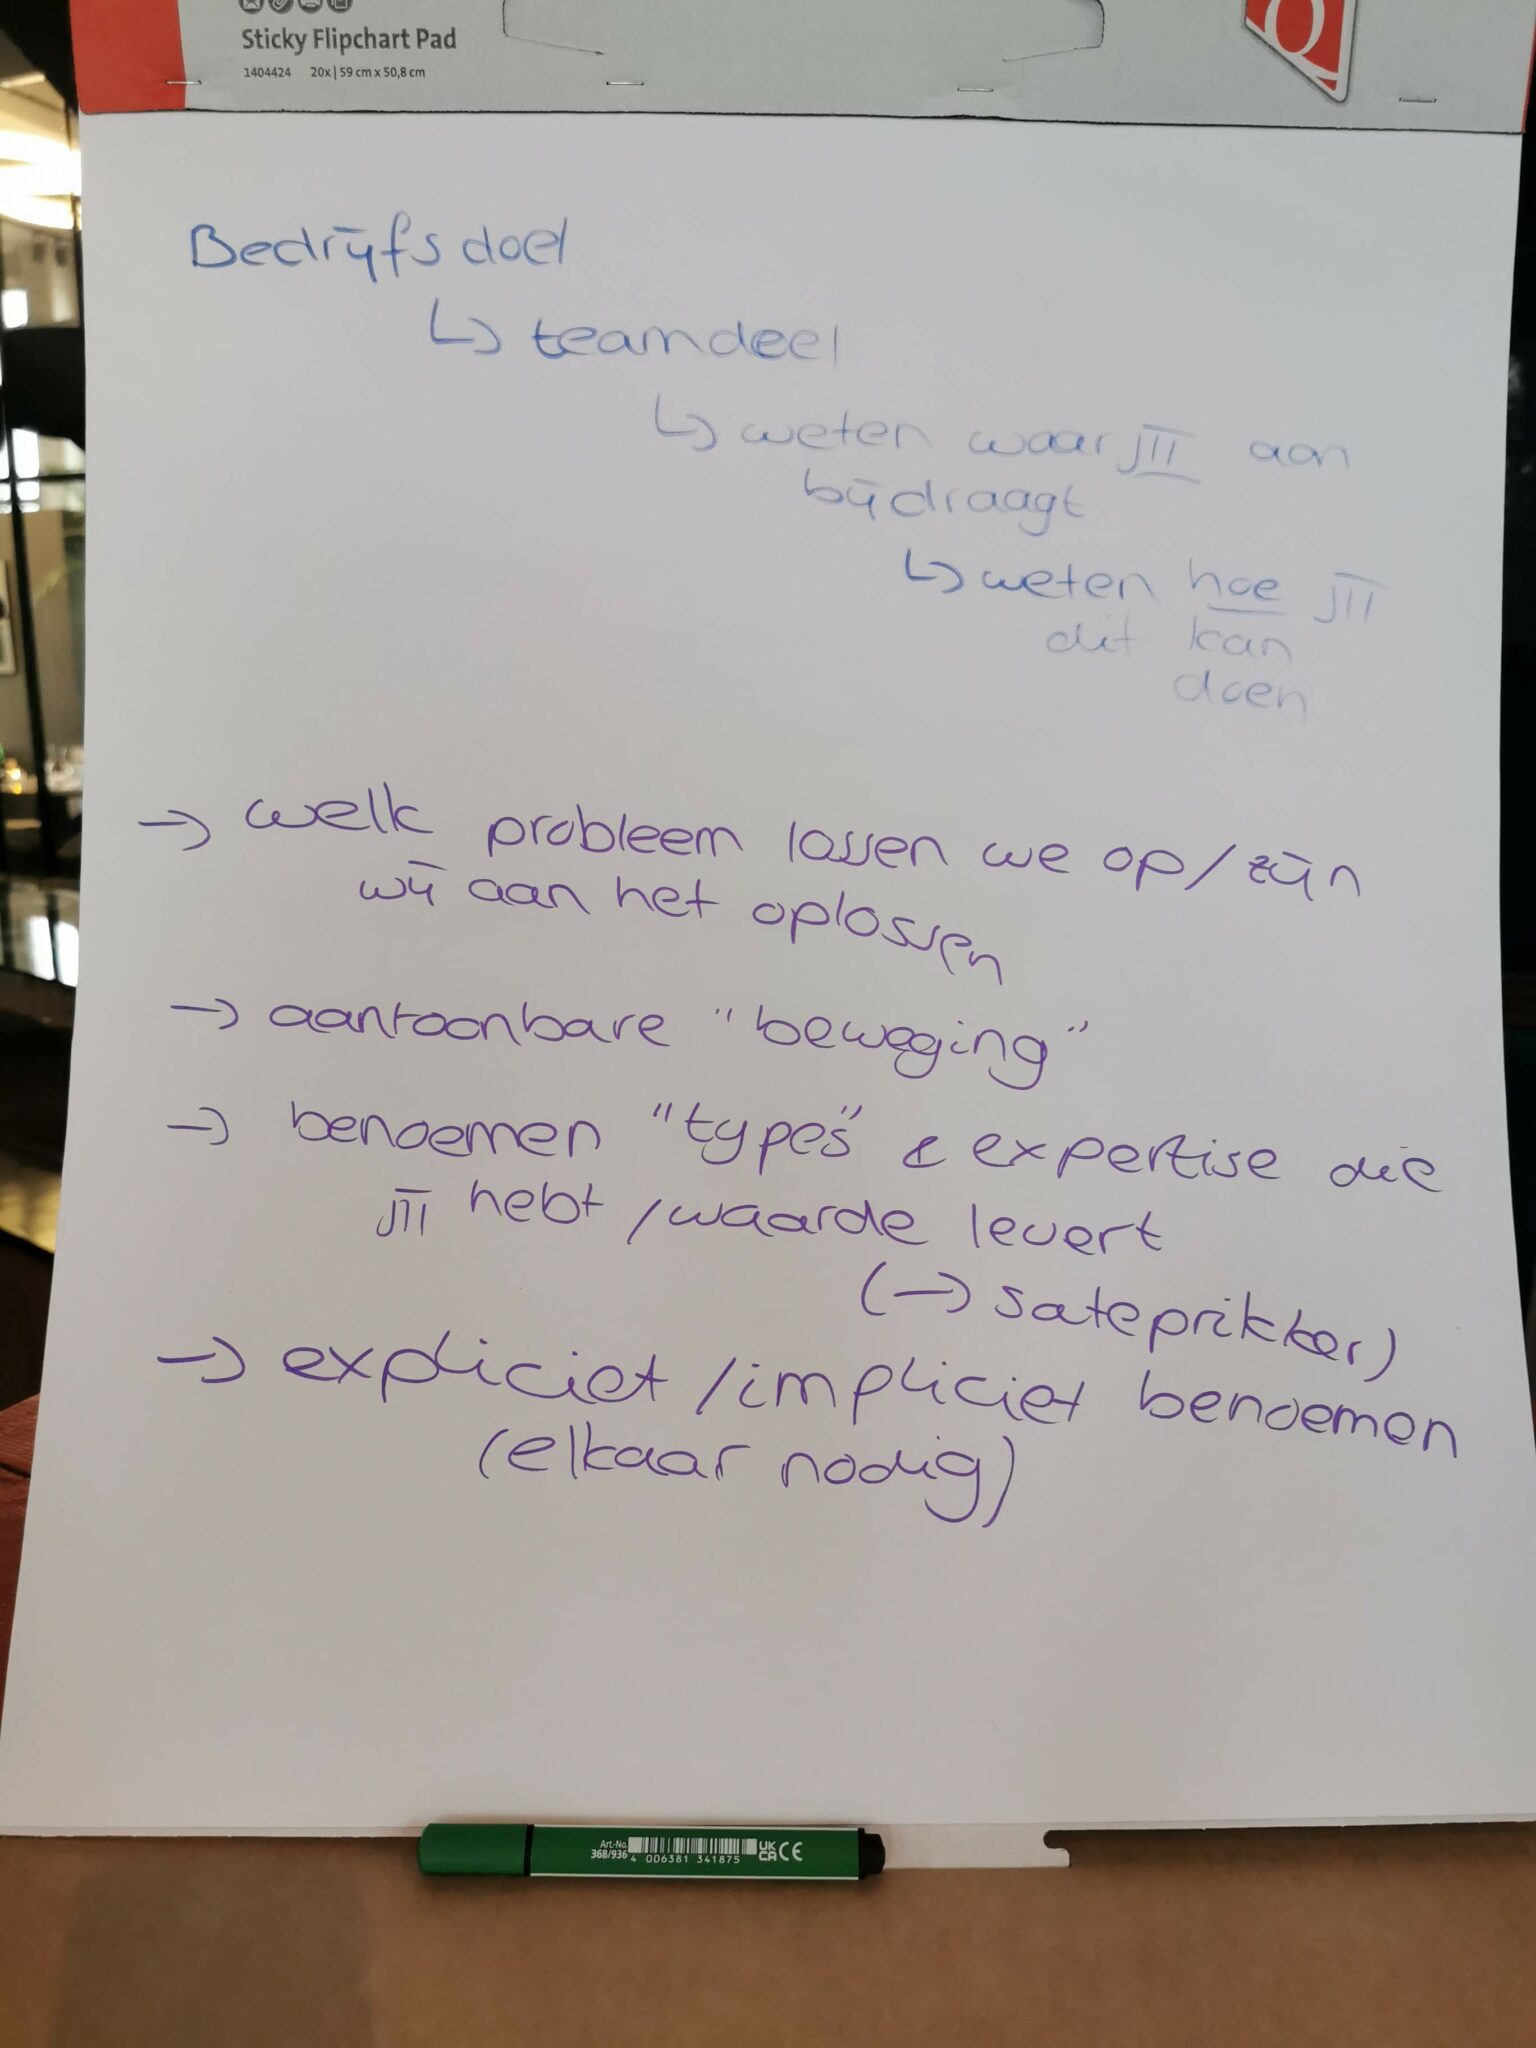 Sticky Flipchart Pad
1404424 20x | 59 cm x 50,8 cm
Bedrijfsdoel
↳ teamdeel
↳ weten waar jij aan
bijdraagt
↳ weten hoe jij
dit kan
doen
→ welk probleem lossen we op / zijn
wij aan het oplossen
→ aantoonbare "beweging"
→ benoemen "types" & expertise die
jij hebt / waarde levert
(→ sateprikker)
→ expliciet / impliciet benoemen
(elkaar nodig)
Art.-No. 368/936
4 006381 341875
UK CA CE